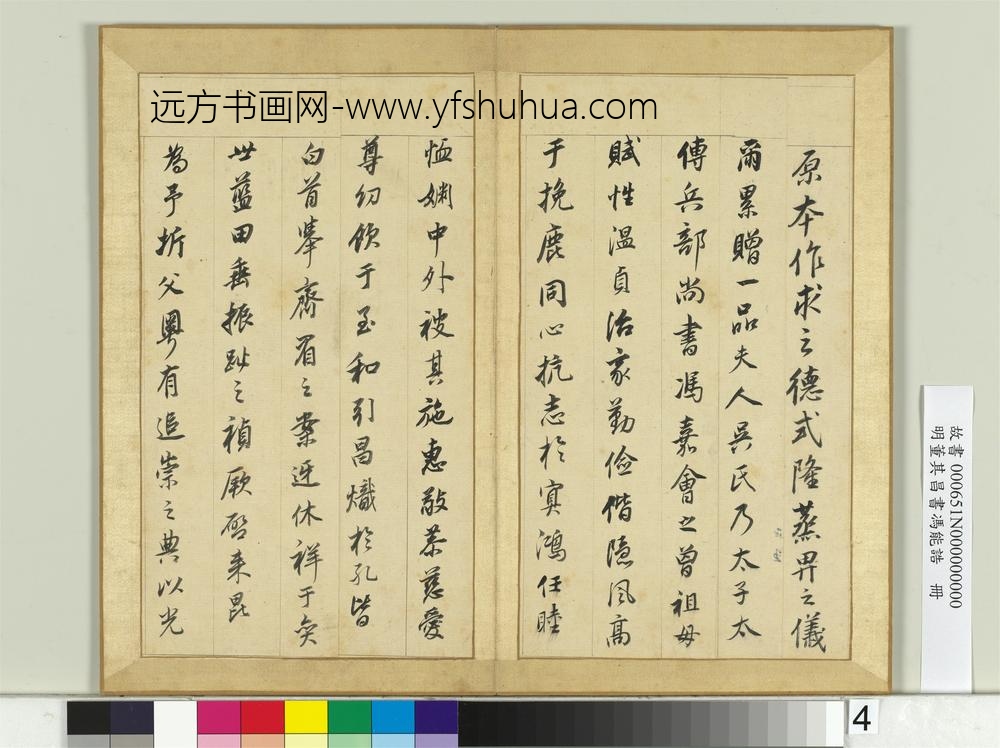 远方书画网-www.yfshuhua.com
原本作求之德式隆蒸畀之儀
爾累贈一品夫人吳氏乃太子太
傅兵部尚書馮嘉會之曾祖母
賦性溫貞治家勤儉偕隱風高
于挽鹿同心抗志於冥鴻任睦
恤婣中外被其施惠敬恭慈愛
尊幼飲于至和引昌熾於孔皆
白首舉齊眉之案迓休祥于奕
世藍田垂振趾之禎厥啓来昆
為予折父粵有追崇之典以光
故書 000651N000000000
明董其昌書馮能誥 冊
4